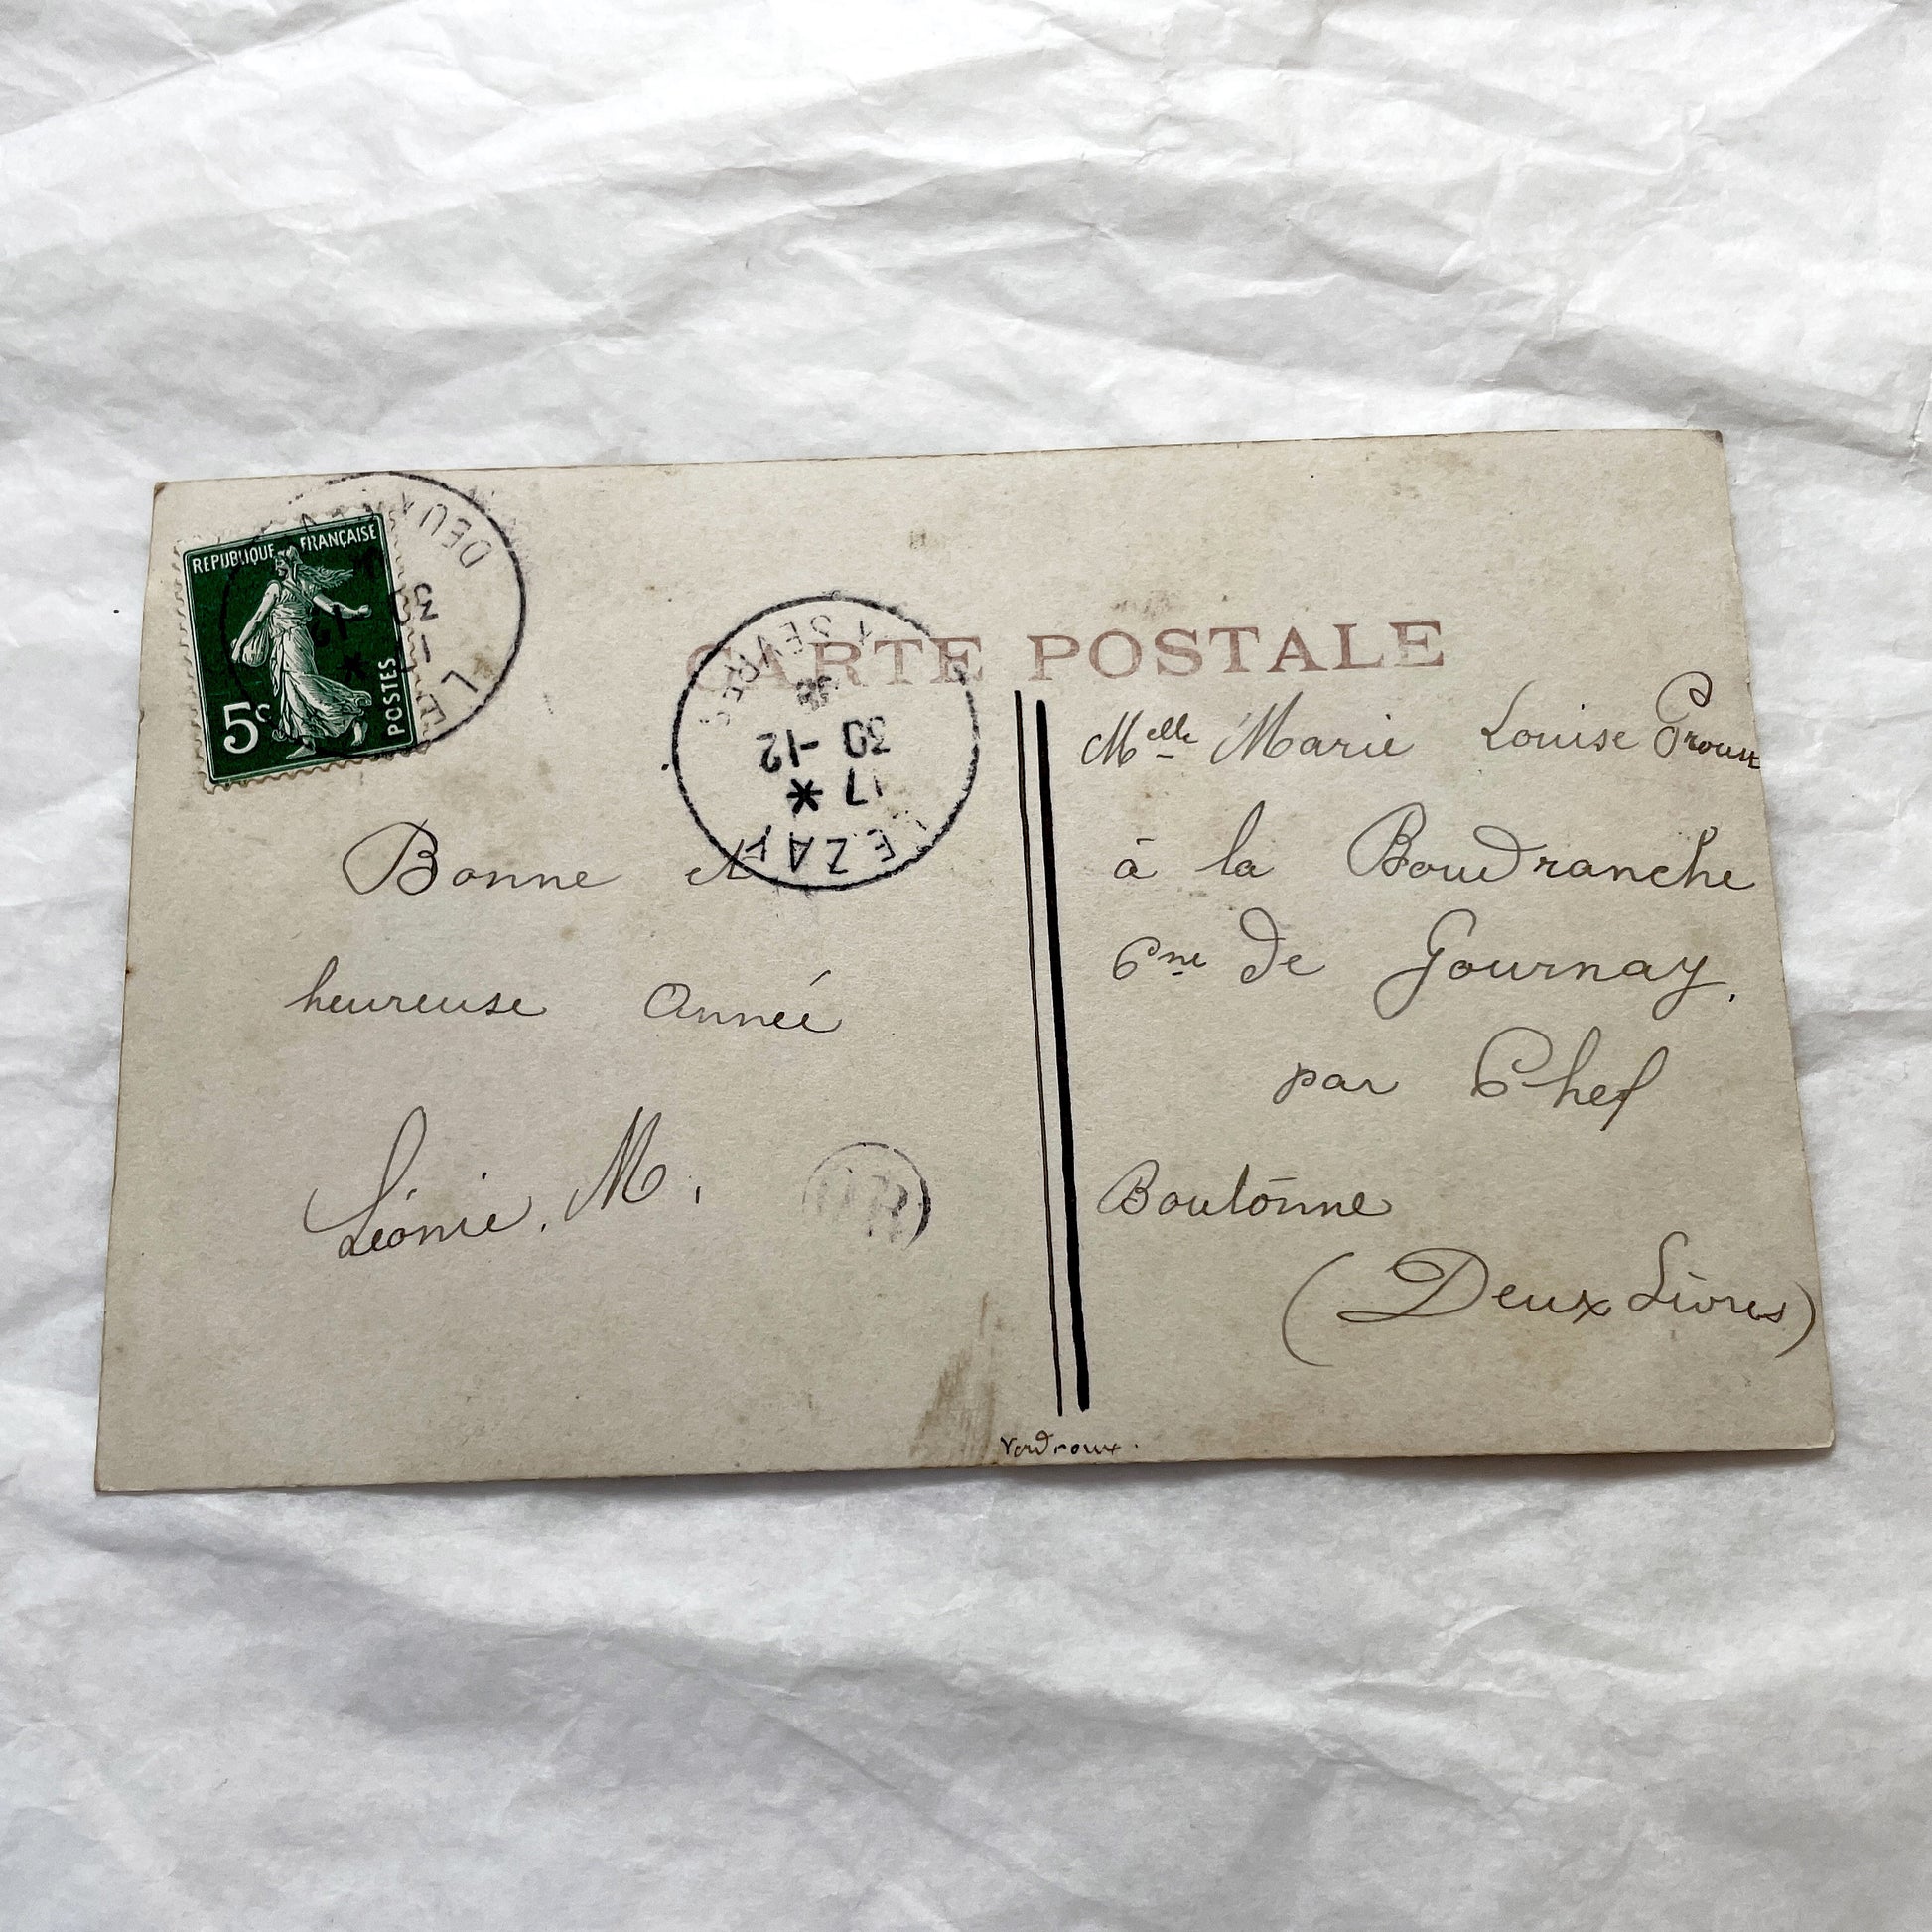 REPUBLIQUE FRANÇAISE
5c
POSTES
DEUX
30
12
*
CARTE POSTALE
SEVRES
30 -12
17 *
LEZAY
Bonne et
heureuse Année
Léonie. M.
Melle Marie Louise Proust
à la Boudranche
Cne de Gournay.
par Chef
Boutonne
(Deux Sèvres)